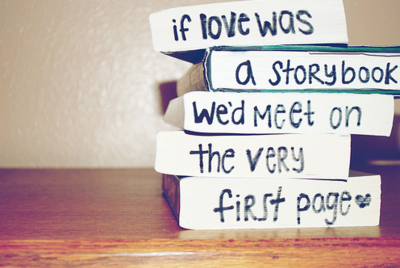 if love was
a storybook
We'd Meet on
the very
first page♥